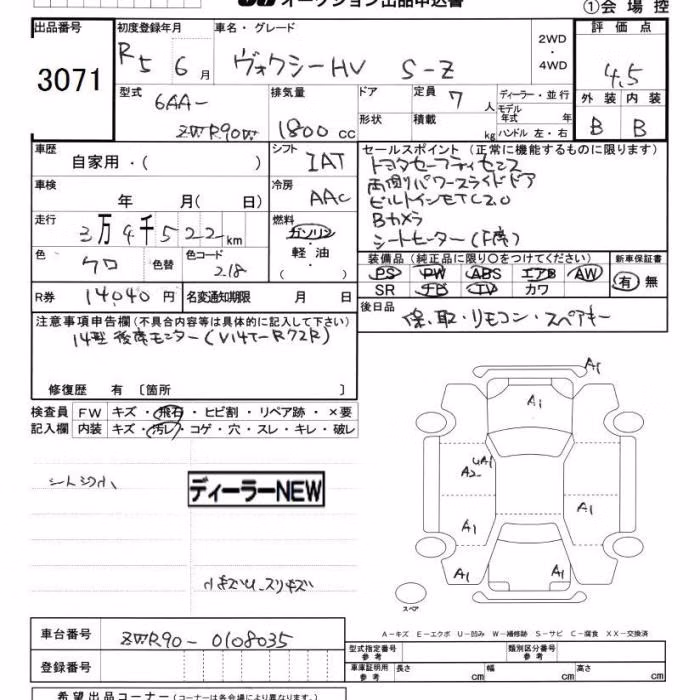 オークション出品申込書
①会場控
出品番号
3071
初度登録年月
R5 6月
車名・グレード
ヴォクシーHV S-Z
2WD
・
4WD
評価点
4.5
外装 内装
B B
型式
6AA-
ZWR90W
排気量
1800cc
ドア
形状
定員 7人
積載 kg
ディーラー・並行
モデル年式 年
ハンドル 左・右
車歴
自家用・( )
シフト
IAT
車検
年 月( 日)
冷房
AAC
走行
3万4千522km
燃料
ガソリン
・
軽油
・
( )
色
クロ
色替
色コード
218
R券 14,040円
名変通知期限 月 日
セールスポイント(正常に機能するものに限ります)
トヨタセーフティセンス
両側パワースライドドア
ビルトインETC2.0
Bカメラ
シートヒーター(F席)
装備品(純正品に限り○をつけてください)
PS PW ABS エアB AW
SR ナビ TV カワ
新車保証書
有 無
後日品
保・取・リモコン・スペアキー
注意事項申告欄(不具合内容等は具体的に記入して下さい)
14型 後席モニター(V14T-R72R)
修復歴 有〔箇所 〕
検査員記入欄
FW キズ・飛石・ヒビ割・リペア跡・×要
内装 キズ・汚レ・コゲ・穴・スレ・キレ・破レ
ディーラーNEW
小キズ スリキズ
A1
A1
UA1
A2
A1
A1
A1
A1
スペア
A-キズ E-エクボ U-凹み W-補修跡 S-サビ C-腐食 XX-交換済
車台番号
ZWR90-0108035
登録番号
型式指定番号 参考
類別区分番号 参考
車庫証明用 参考
長さ cm
幅 cm
高さ cm
希望出品コーナー(コーナーは各会場により異なります。)